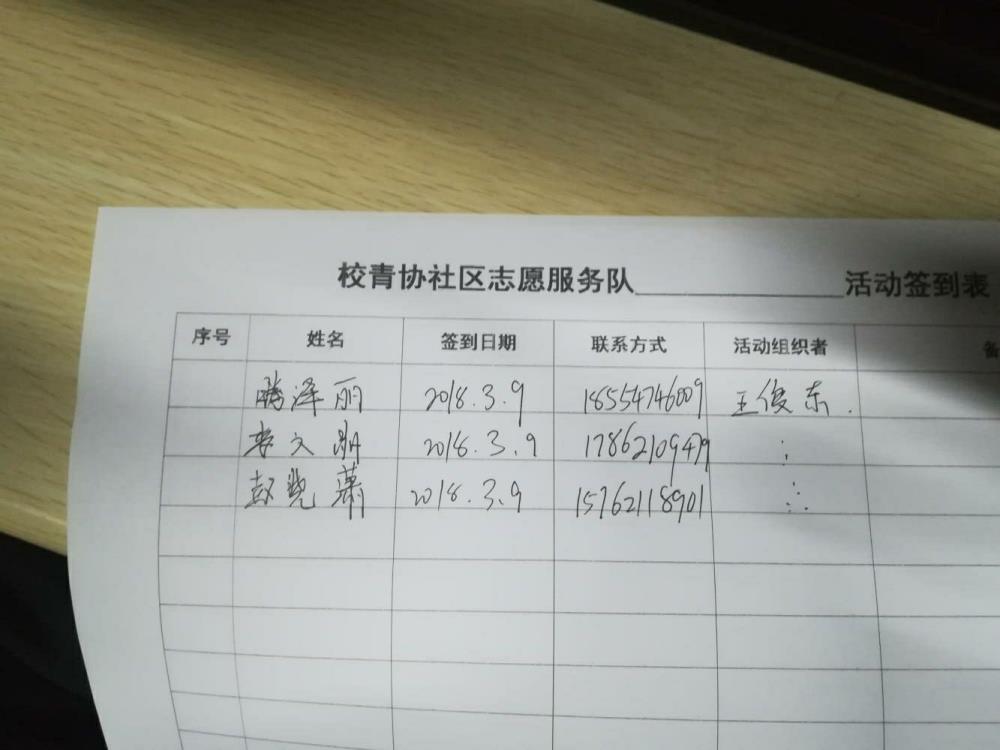 校青协社区志愿服务队____________活动签到表
序号 姓名 签到日期 联系方式 活动组织者 备
腾泽丽 2018.3.9 18554746009 王俊东.
李文 2018.3.9 17862109479 :
彭晓萧 2018.3.9 15762118901 ∴